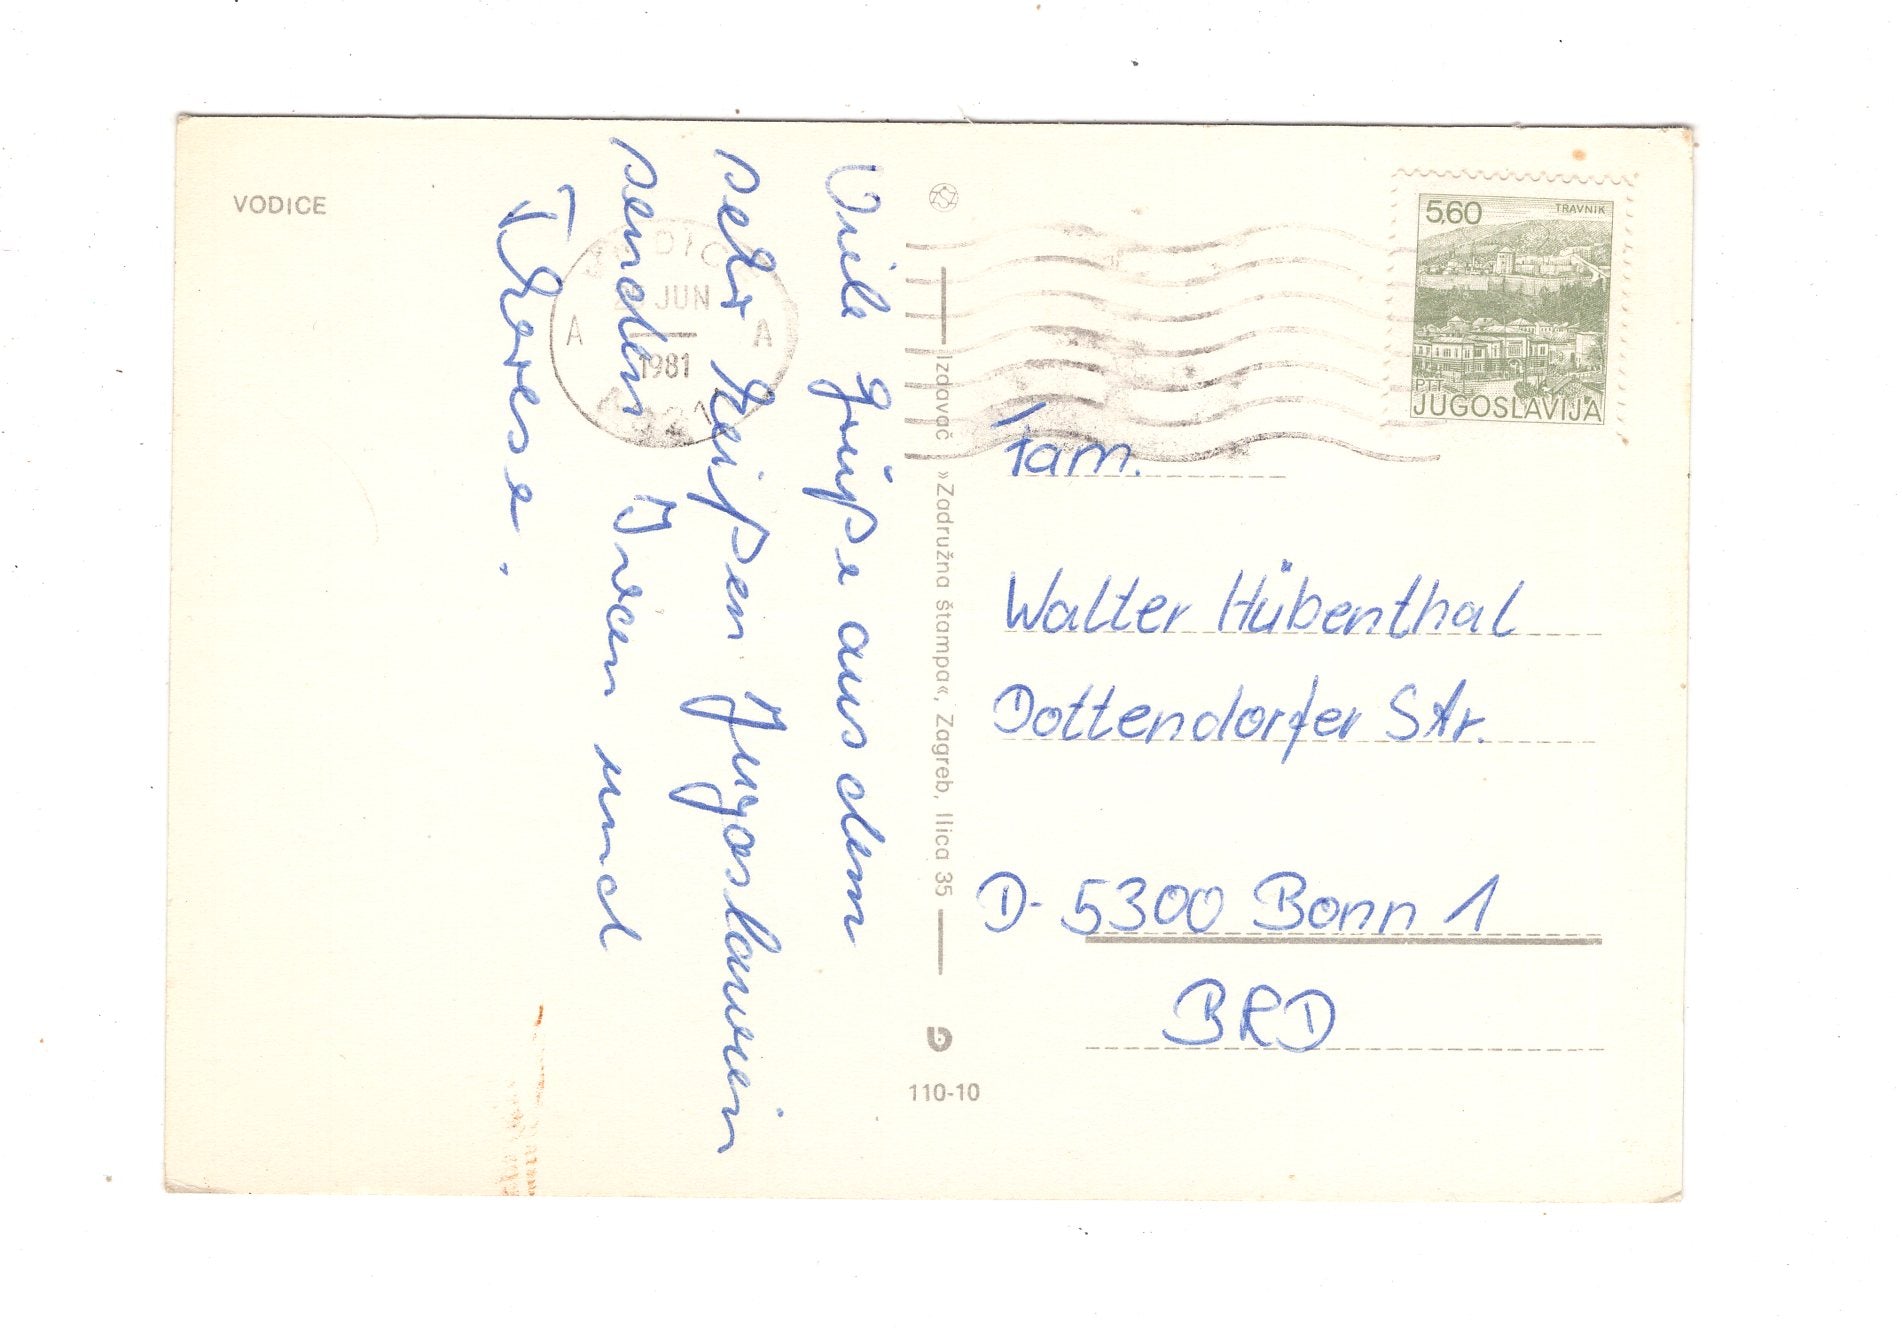 VODICE
Viele Grüße aus dem
sehr heißen Jugoslawein
senden Irien und
Therese.
JUN
1981
A A
Izdavač »Zadružna štampa«, Zagreb, Ilica 35
110-10
5,60 TRAVNIK
PTT
JUGOSLAVIJA
Fam.
Walter Hübenthal
Dottendorfer Str.
D-5300 Bonn 1
BRD